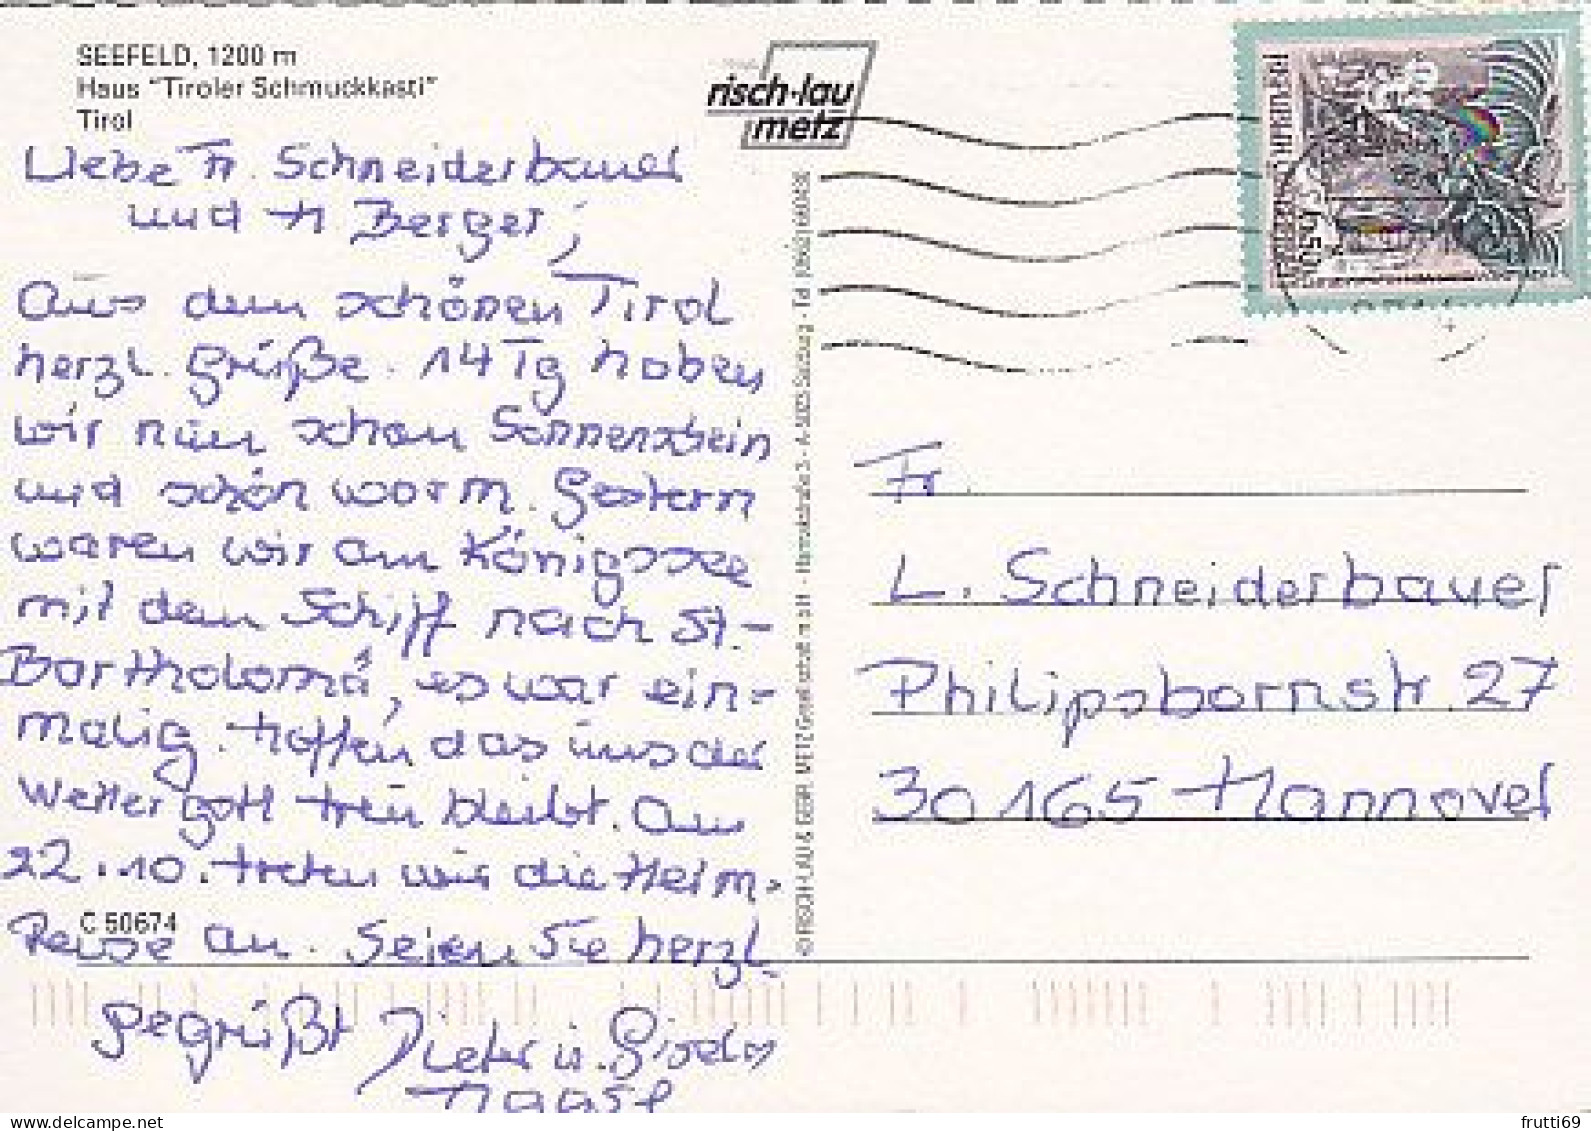 SEEFELD, 1200 m
Haus "Tiroler Schmuckkastl"
Tirol
risch-lau
metz
REPUBLIK ÖSTERREICH
Liebe Fr. Schneiderbauer
und H Berger,
Aus dem schönen Tirol
herzl. Grüße. 14 Tg haben
wir nun schon Sonnenschein
und schön warm. Gestern
waren wir am Königssee
mit dem Schiff nach St.-
Bartholomä, es war ein-
malig. Hoffen das uns der
Wettergott treu bleibt. Am
22.10. treten wir die Heim-
Reise an. Seien Sie herzl.
gegrüßt Dieter u. Gisela
Haase
C 50674
© RISCH-LAU & GEBR. METZ Gesellschaft m.b.H. - Hannakstraße 3 - A-5023 Salzburg - Tel.
Fr.
L. Schneiderbauer
Philipsbornstr. 27
30165 Hannover
www.delcampe.net
frutti69